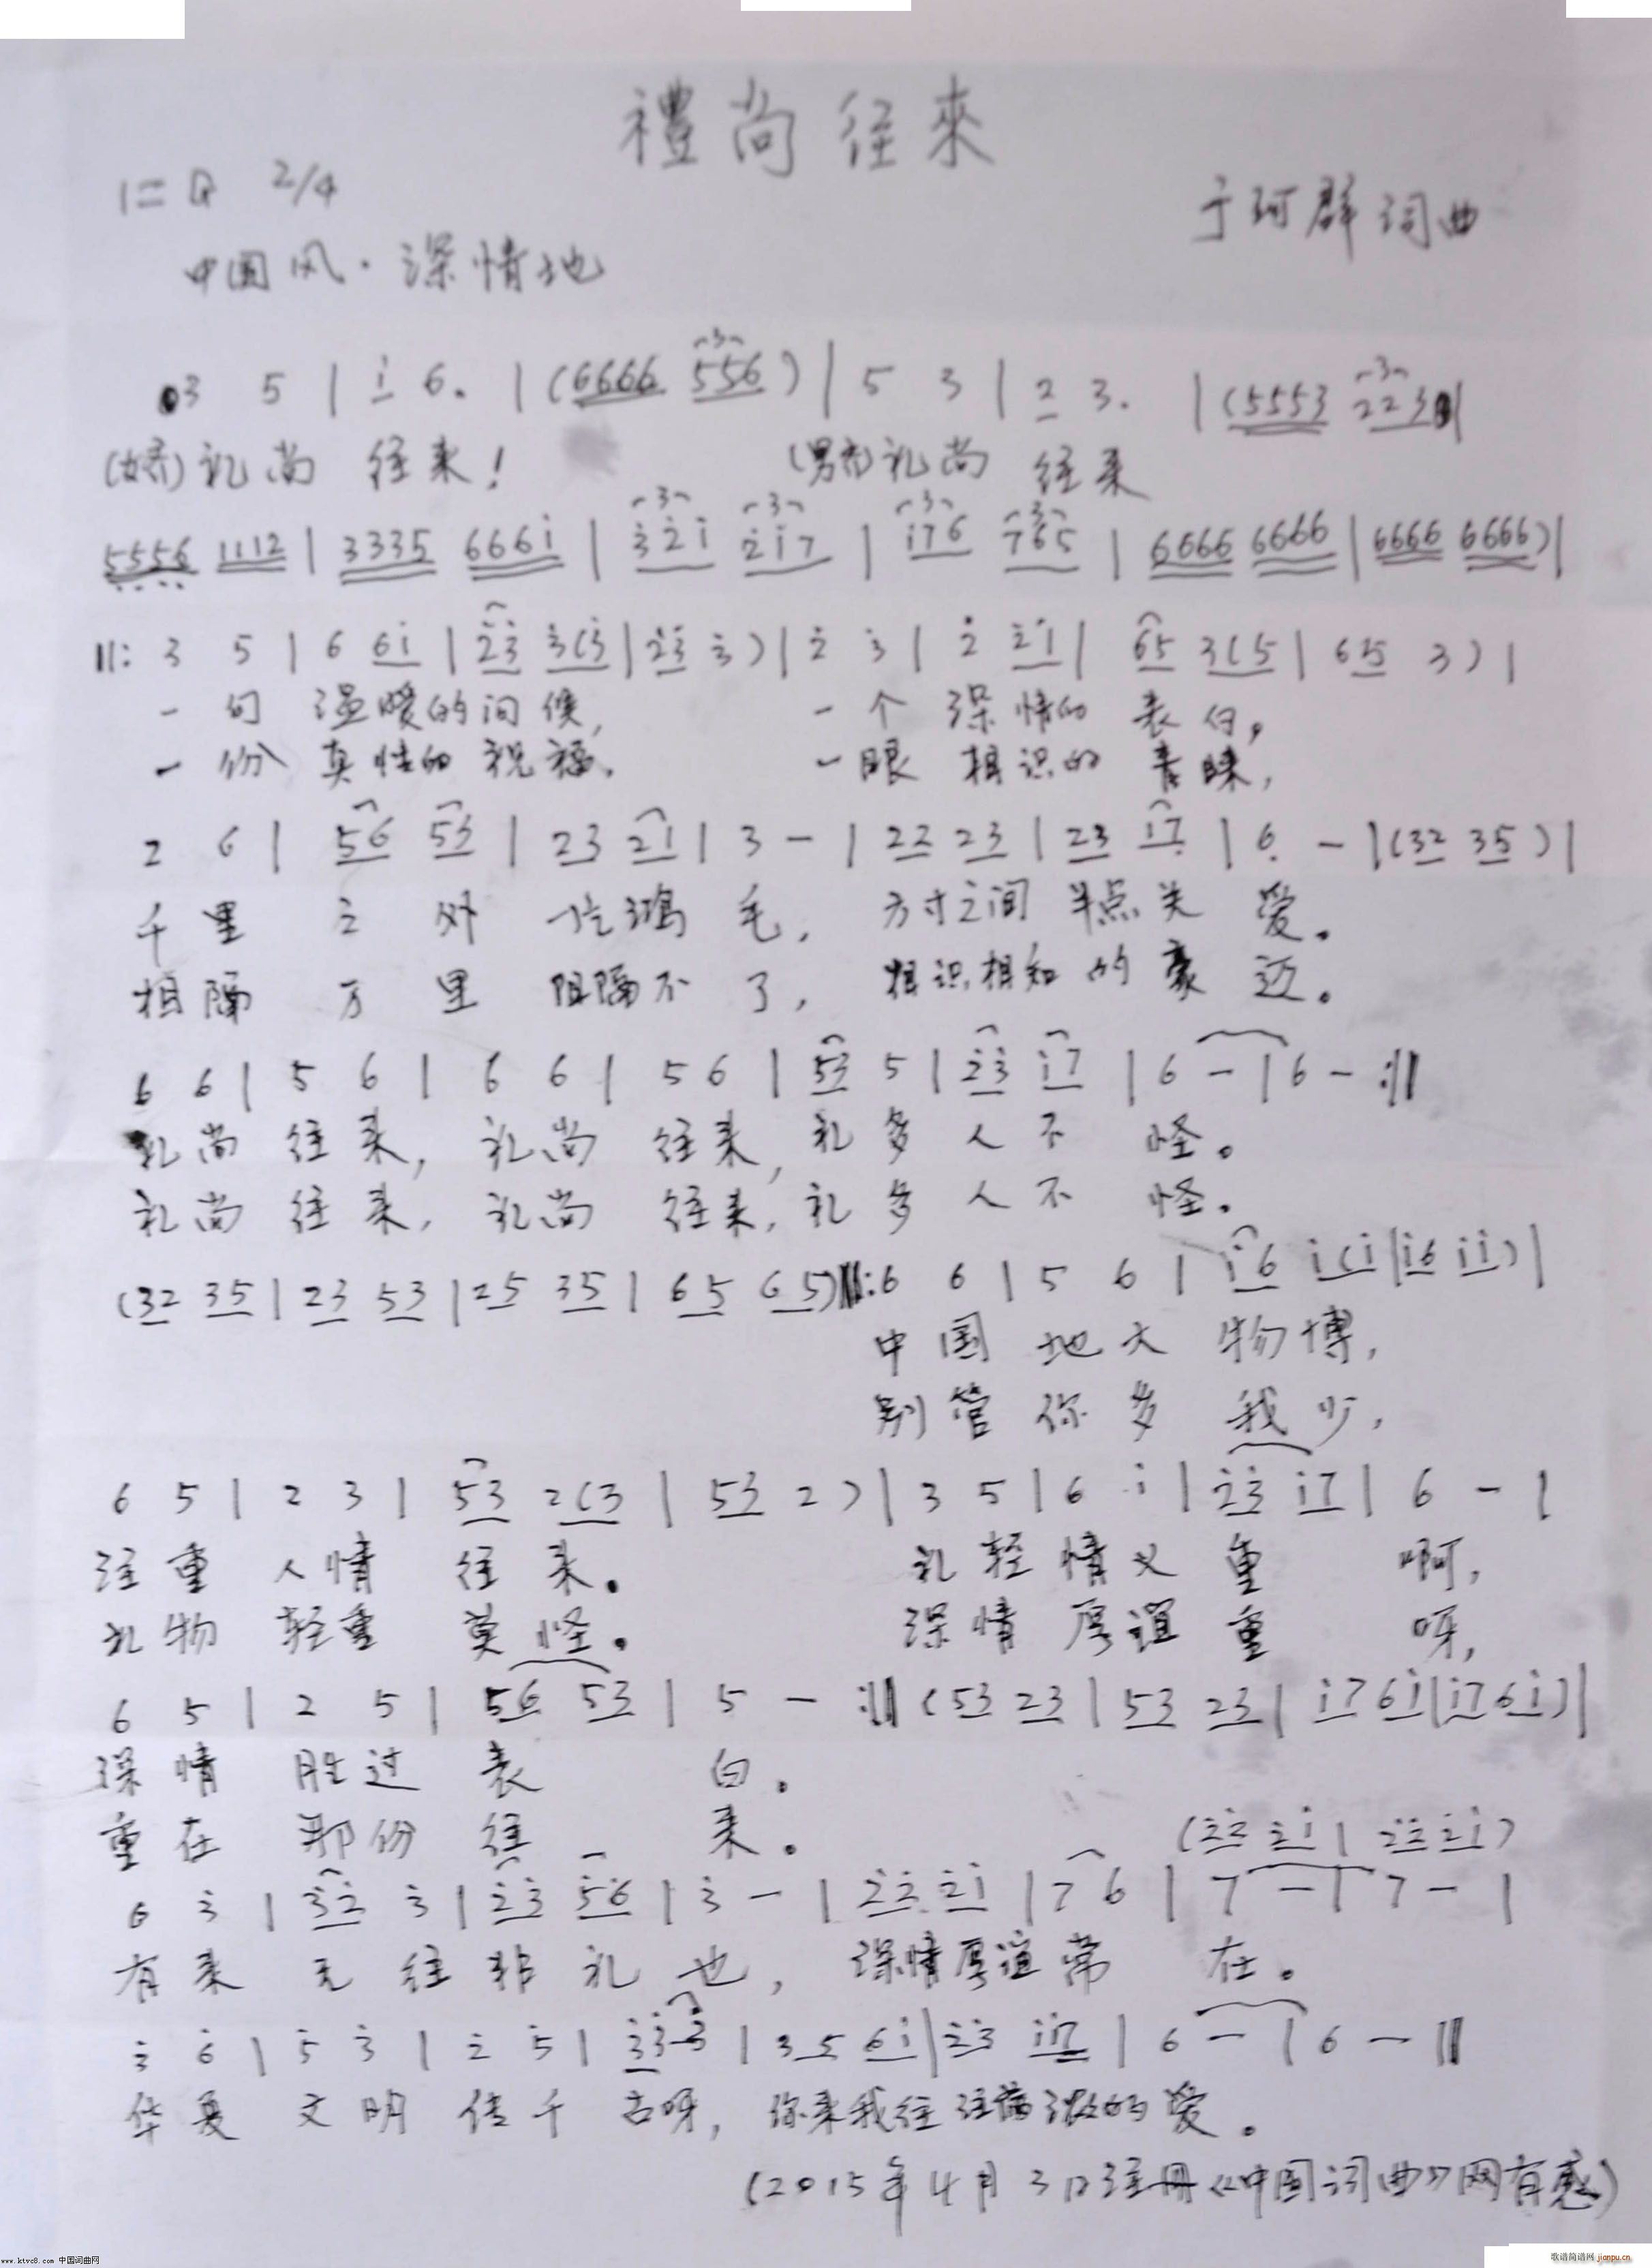 禮尚往來
1= 2/4
于珂群词曲
中国风·深情地
3 5 | i 6. | (6666 556) | 5 3 | 2 3. | (5553 223) |
(女齐)礼尚 往来! (男齐)礼尚 往来
5556 1112 | 3335 666i | 32i 2i7 | i76 765 | 6666 6666 | 6666 6666) |
||: 3 5 | 6 6i | 23 3(3 | 23 3) | 2 3 | 2 2i | 65 3(5 | 65 3) |
一 句 温暖的问候, 一 个 深情的 表白。
一 份 真情的祝福, 一眼 相识的 青睐,
2 6 | 56 53 | 23 21 | 3 - | 22 23 | 23 i7 | 6 - | (32 35) |
千里 之外 一片鸿毛, 方寸之间 半点关爱。
相隔 万里 阻隔不了, 相识相知的豪迈。
6 6 | 5 6 | 6 6 | 5 6 | 53 5 | 23 i7 | 6 - | 6 - :||
礼尚 往来, 礼尚 往来, 礼多人不 怪。
礼尚 往来, 礼尚 往来, 礼多人不 怪。
(32 35 | 23 53 | 25 35 | 65 65) ||: 6 6 | 5 6 | i6 i(i | i6 ii) |
中国 地大 物博,
别管 你多 我少,
6 5 | 2 3 | 53 2(3 | 53 2) | 3 5 | 6 i | 23 i7 | 6 - |
注重 人情 往来。 礼轻情义重 啊,
礼物 轻重 莫怪。 深情厚谊重 呀,
6 5 | 2 5 | 56 53 | 5 - :|| (53 23 | 53 23 | i7 6i | i7 6i) |
深情 胜过 表 白。
重在 那份 往 来。
(22 2i | 22 2i)
6 3 | 32 3 | 23 56 | 3 - | 22 2i | 7 6 | 7 - | 7 - |
有来 无往非礼也, 深情厚谊常 在。
3 6 | 5 3 | 2 5 | 33 3 | 35 6i | 23 i7 | 6 - | 6 - ||
华夏 文明 传千古呀, 你来我往 注满浓浓的爱。
(2015年4月3日注册《中国词曲》网有感)
www.ktvc8.com 中国词曲网
歌谱简谱网 jianpu.cn